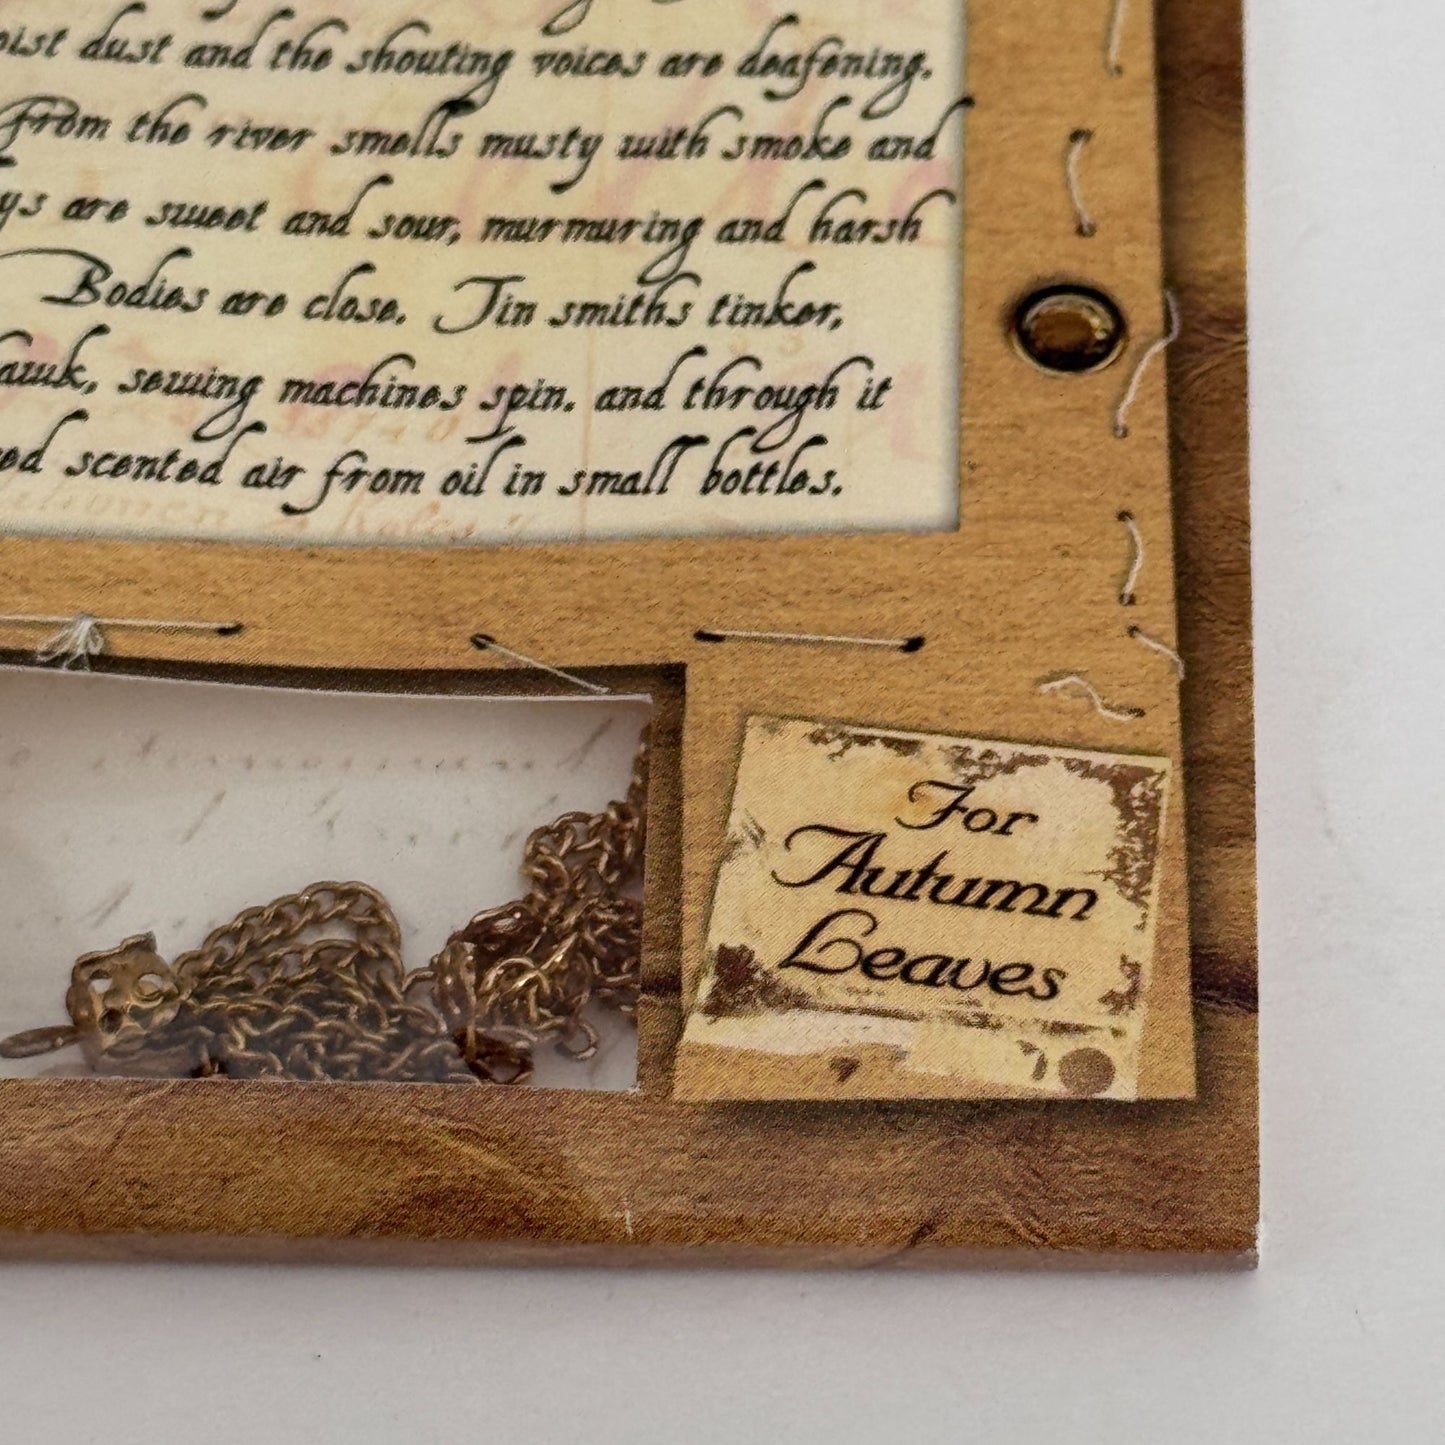 dust and the shouting voices are deafening.
From the river smells musty with smoke and
are sweet and sour, murmuring and harsh
Bodies are close. Tin smiths tinker,
sewing machines spin. and through it
scented air from oil in small bottles.
For
Autumn
Leaves